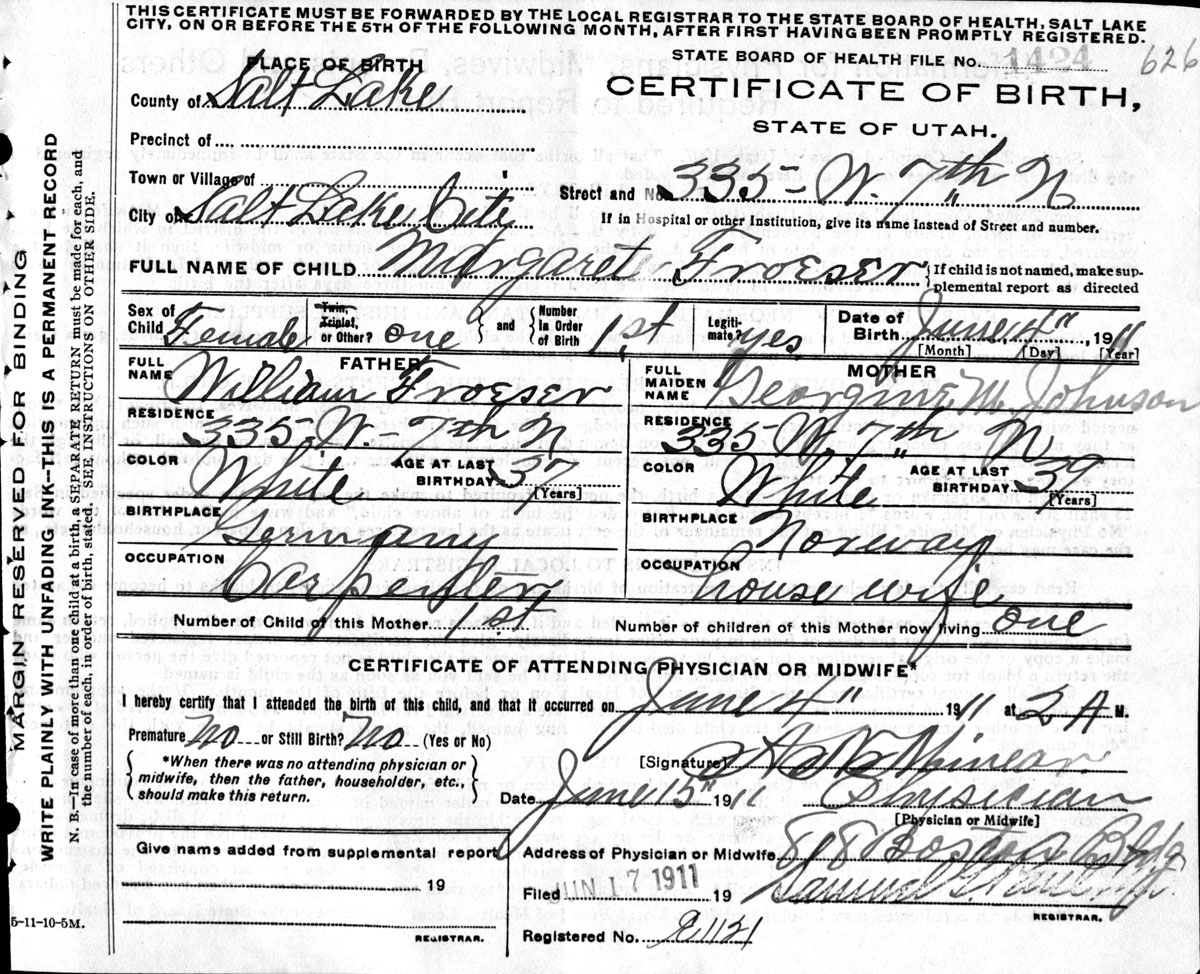 THIS CERTIFICATE MUST BE FORWARDED BY THE LOCAL REGISTRAR TO THE STATE BOARD OF HEALTH, SALT LAKE
CITY, ON OR BEFORE THE 5TH OF THE FOLLOWING MONTH, AFTER FIRST HAVING BEEN PROMPTLY REGISTERED.
STATE BOARD OF HEALTH FILE No. 1424 626
PLACE OF BIRTH
County of Salt Lake
CERTIFICATE OF BIRTH,
STATE OF UTAH.
Precinct of
Town or Village of
Street and No. 335 - W. 7th N
City of Salt Lake Cite
If in Hospital or other Institution, give its name instead of Street and number.
FULL NAME OF CHILD Margaret Froeser
If child is not named, make supplemental report as directed
Sex of Child Female
Twin, Triplet, or Other? one
and
Number In Order of Birth 1st
Legitimate? yes
Date of Birth June 4" 1911
[Month] [Day] [Year]
FATHER
FULL NAME William Froeser
RESIDENCE 335 W 7th N
COLOR White
AGE AT LAST BIRTHDAY 37
[Years]
BIRTHPLACE Germany
OCCUPATION Carpenter
MOTHER
FULL MAIDEN NAME Georgine M. Johnson
RESIDENCE 335 - W. 7th N
COLOR White
AGE AT LAST BIRTHDAY 30
[Years]
BIRTHPLACE Norway
OCCUPATION house wife
Number of Child of this Mother 1st
Number of children of this Mother now living one
CERTIFICATE OF ATTENDING PHYSICIAN OR MIDWIFE*
I hereby certify that I attended the birth of this child, and that it occurred on June 4" 1911 at 2 A M.
Premature No or Still Birth? No (Yes or No)
*When there was no attending physician or
midwife, then the father, householder, etc.,
should make this return.
[Signature]
Date June 15" 1911 Physician
[Physician or Midwife]
Give name added from supplemental report
19
REGISTRAR.
Address of Physician or Midwife 818 Boston Bldg
Filed JUN 1911 19
REGISTRAR.
Registered No.
MARGIN RESERVED FOR BINDING
WRITE PLAINLY WITH UNFADING INK—THIS IS A PERMANENT RECORD
N. B.—In case of more than one child at a birth, a SEPARATE RETURN must be made for each, and
the number of each, in order of birth, stated. SEE INSTRUCTIONS ON OTHER SIDE.
5-11-10-5M.